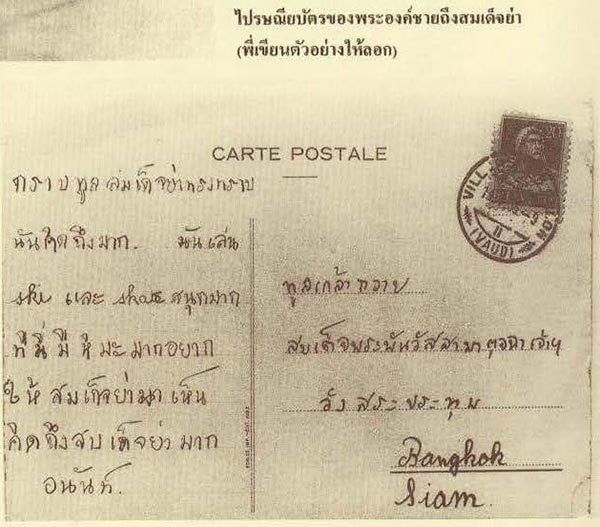 ไปรษณียบัตรของพระองค์ชายถึงสมเด็จย่า
(พี่เขียนตัวอย่างให้ลอก)
CARTE POSTALE
กราบทูลสมเด็จย่าทรงทราบ
นันคิดถึงมาก. นันเล่น
ski และ skate สนุกมาก
ที่นี่มีหิมะมากอยาก
ให้สมเด็จย่ามาเห็น
คิดถึงสมเด็จย่ามาก
อนันท์.
20
VILL
(VAUD)
II
ทูลเกล้าถวาย
สมเด็จพระพันวัสสามาตุจฉาเจ้าฯ
วังสระประทุม
Bangkok
Siam.